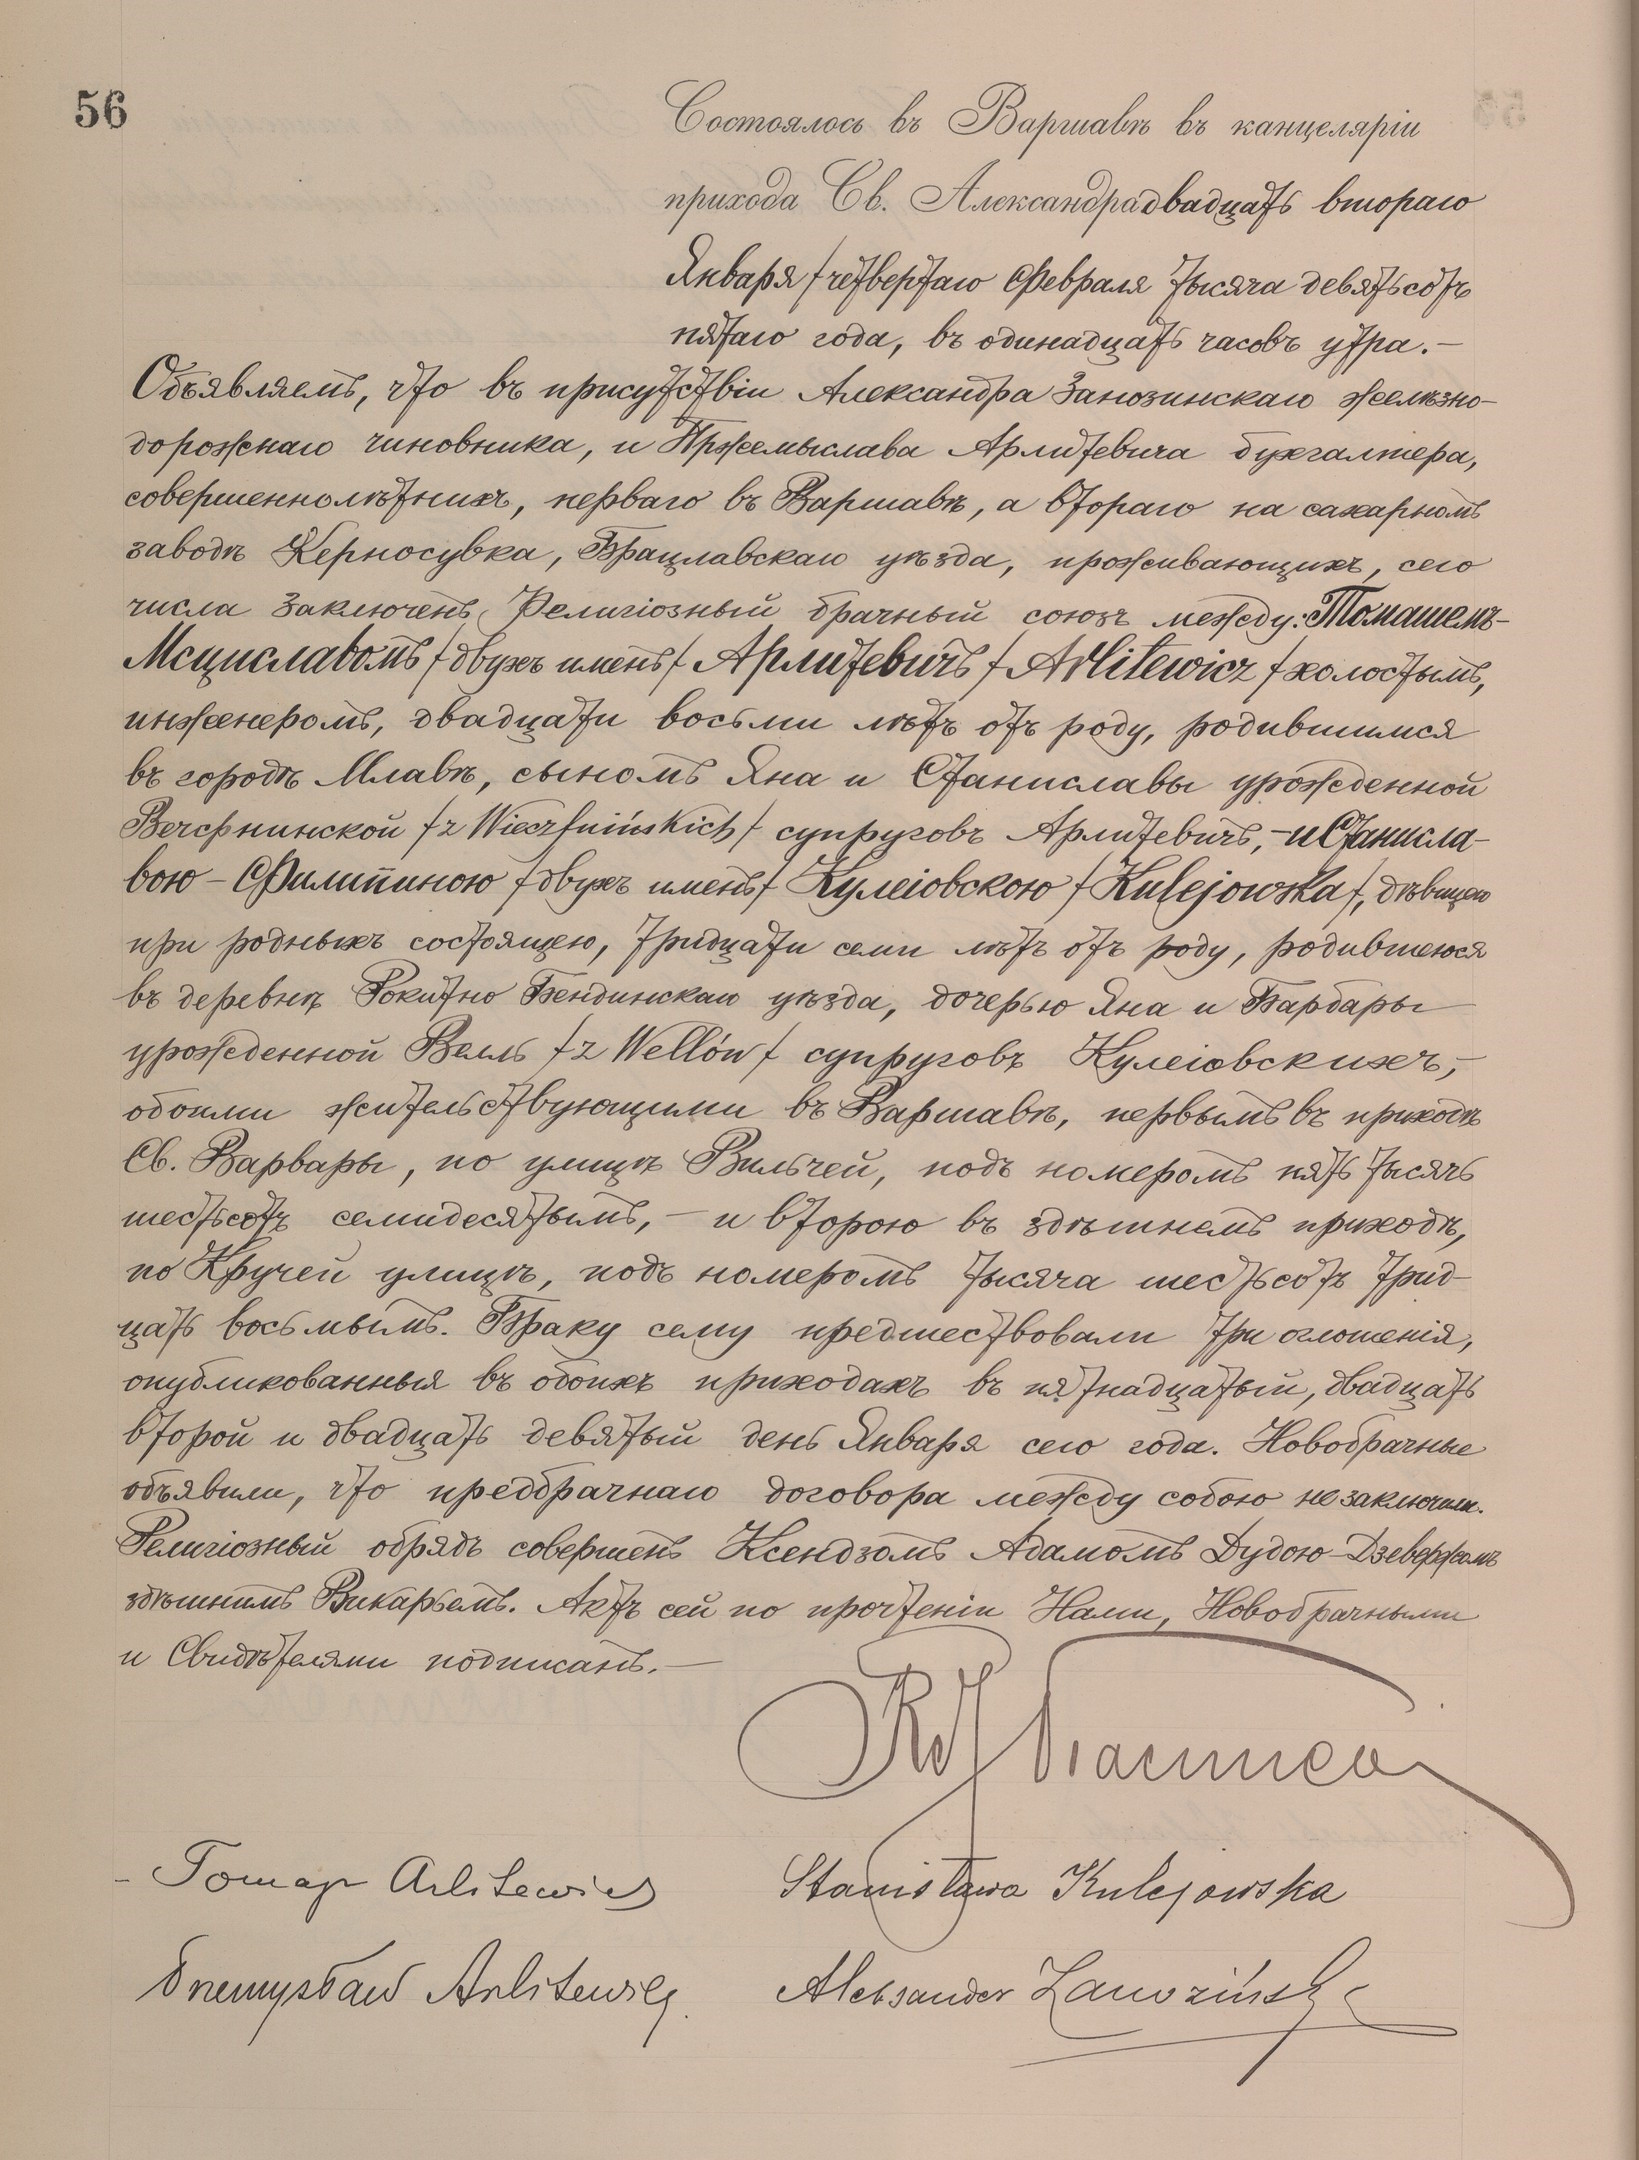 56
Состоялось въ Варшавѣ въ канцеляріи
прихода Св. Александра двадцать втораго
Января /четвертаго Февраля тысяча девятьсотъ
пятаго года, въ одинадцать часовъ утра.—
Объявляемъ, что въ присутствіи Александра Занозинскаго желѣзно-
дорожнаго чиновника, и Пржемыслава Арлитевича бухгалтера,
совершеннолѣтнихъ, перваго въ Варшавѣ, а втораго на сахарномъ
заводѣ Керносувка, Брацлавскаго уѣзда, проживающихъ, сего
числа заключенъ Религіозный брачный союзъ между: Томашемъ-
Мсциславомъ /двухъ именъ/ Арлитевичъ / Arlitewicz / холостымъ,
инженеромъ, двадцати восьми лѣтъ отъ роду, родившимся
въ городѣ Млавѣ, сыномъ Яна и Станиславы урожденной
Вечфнинской /z Wieczfnińskich/ супруговъ Арлитевичъ,—и Станисла-
вою-Филипиною /двухъ именъ/ Кулеіовскою / Kulejowska /, дѣвицею
при родныхъ состоящею, тридцати семи лѣтъ отъ роду, родившеюся
въ деревнѣ Рокитно Бендинскаго уѣзда, дочерью Яна и Барбары
урожденной Велль /z Wellów/ супруговъ Кулеіовскихъ,—
обоими жительствующими въ Варшавѣ, первымъ въ приходѣ
Св. Варвары, по улицѣ Вильчей, подъ номеромъ пять тысячъ
шестьсотъ семидесятымъ,— и второю въ здѣшнемъ приходѣ,
по Кручей улицѣ, подъ номеромъ тысяча шестьсотъ трид-
цать восьмымъ. Браку сему предшествовали три оглошенія,
опубликованныя въ обоихъ приходахъ въ пятнадцатый, двадцать
второй и двадцать девятый день Января сего года. Новобрачные
объявили, что предбрачнаго договора между собою не заключили.
Религіозный обрядъ совершенъ Ксендзомъ Адамомъ Дудою-Дзевержомъ
здѣшнимъ Викарьемъ. Актъ сей по прочтеніи Нами, Новобрачными
и Свидѣтелями подписанъ.—
Tomasz Arlitewicz Stanisława Kulejowska
Przemysław Arlitewicz Aleksander